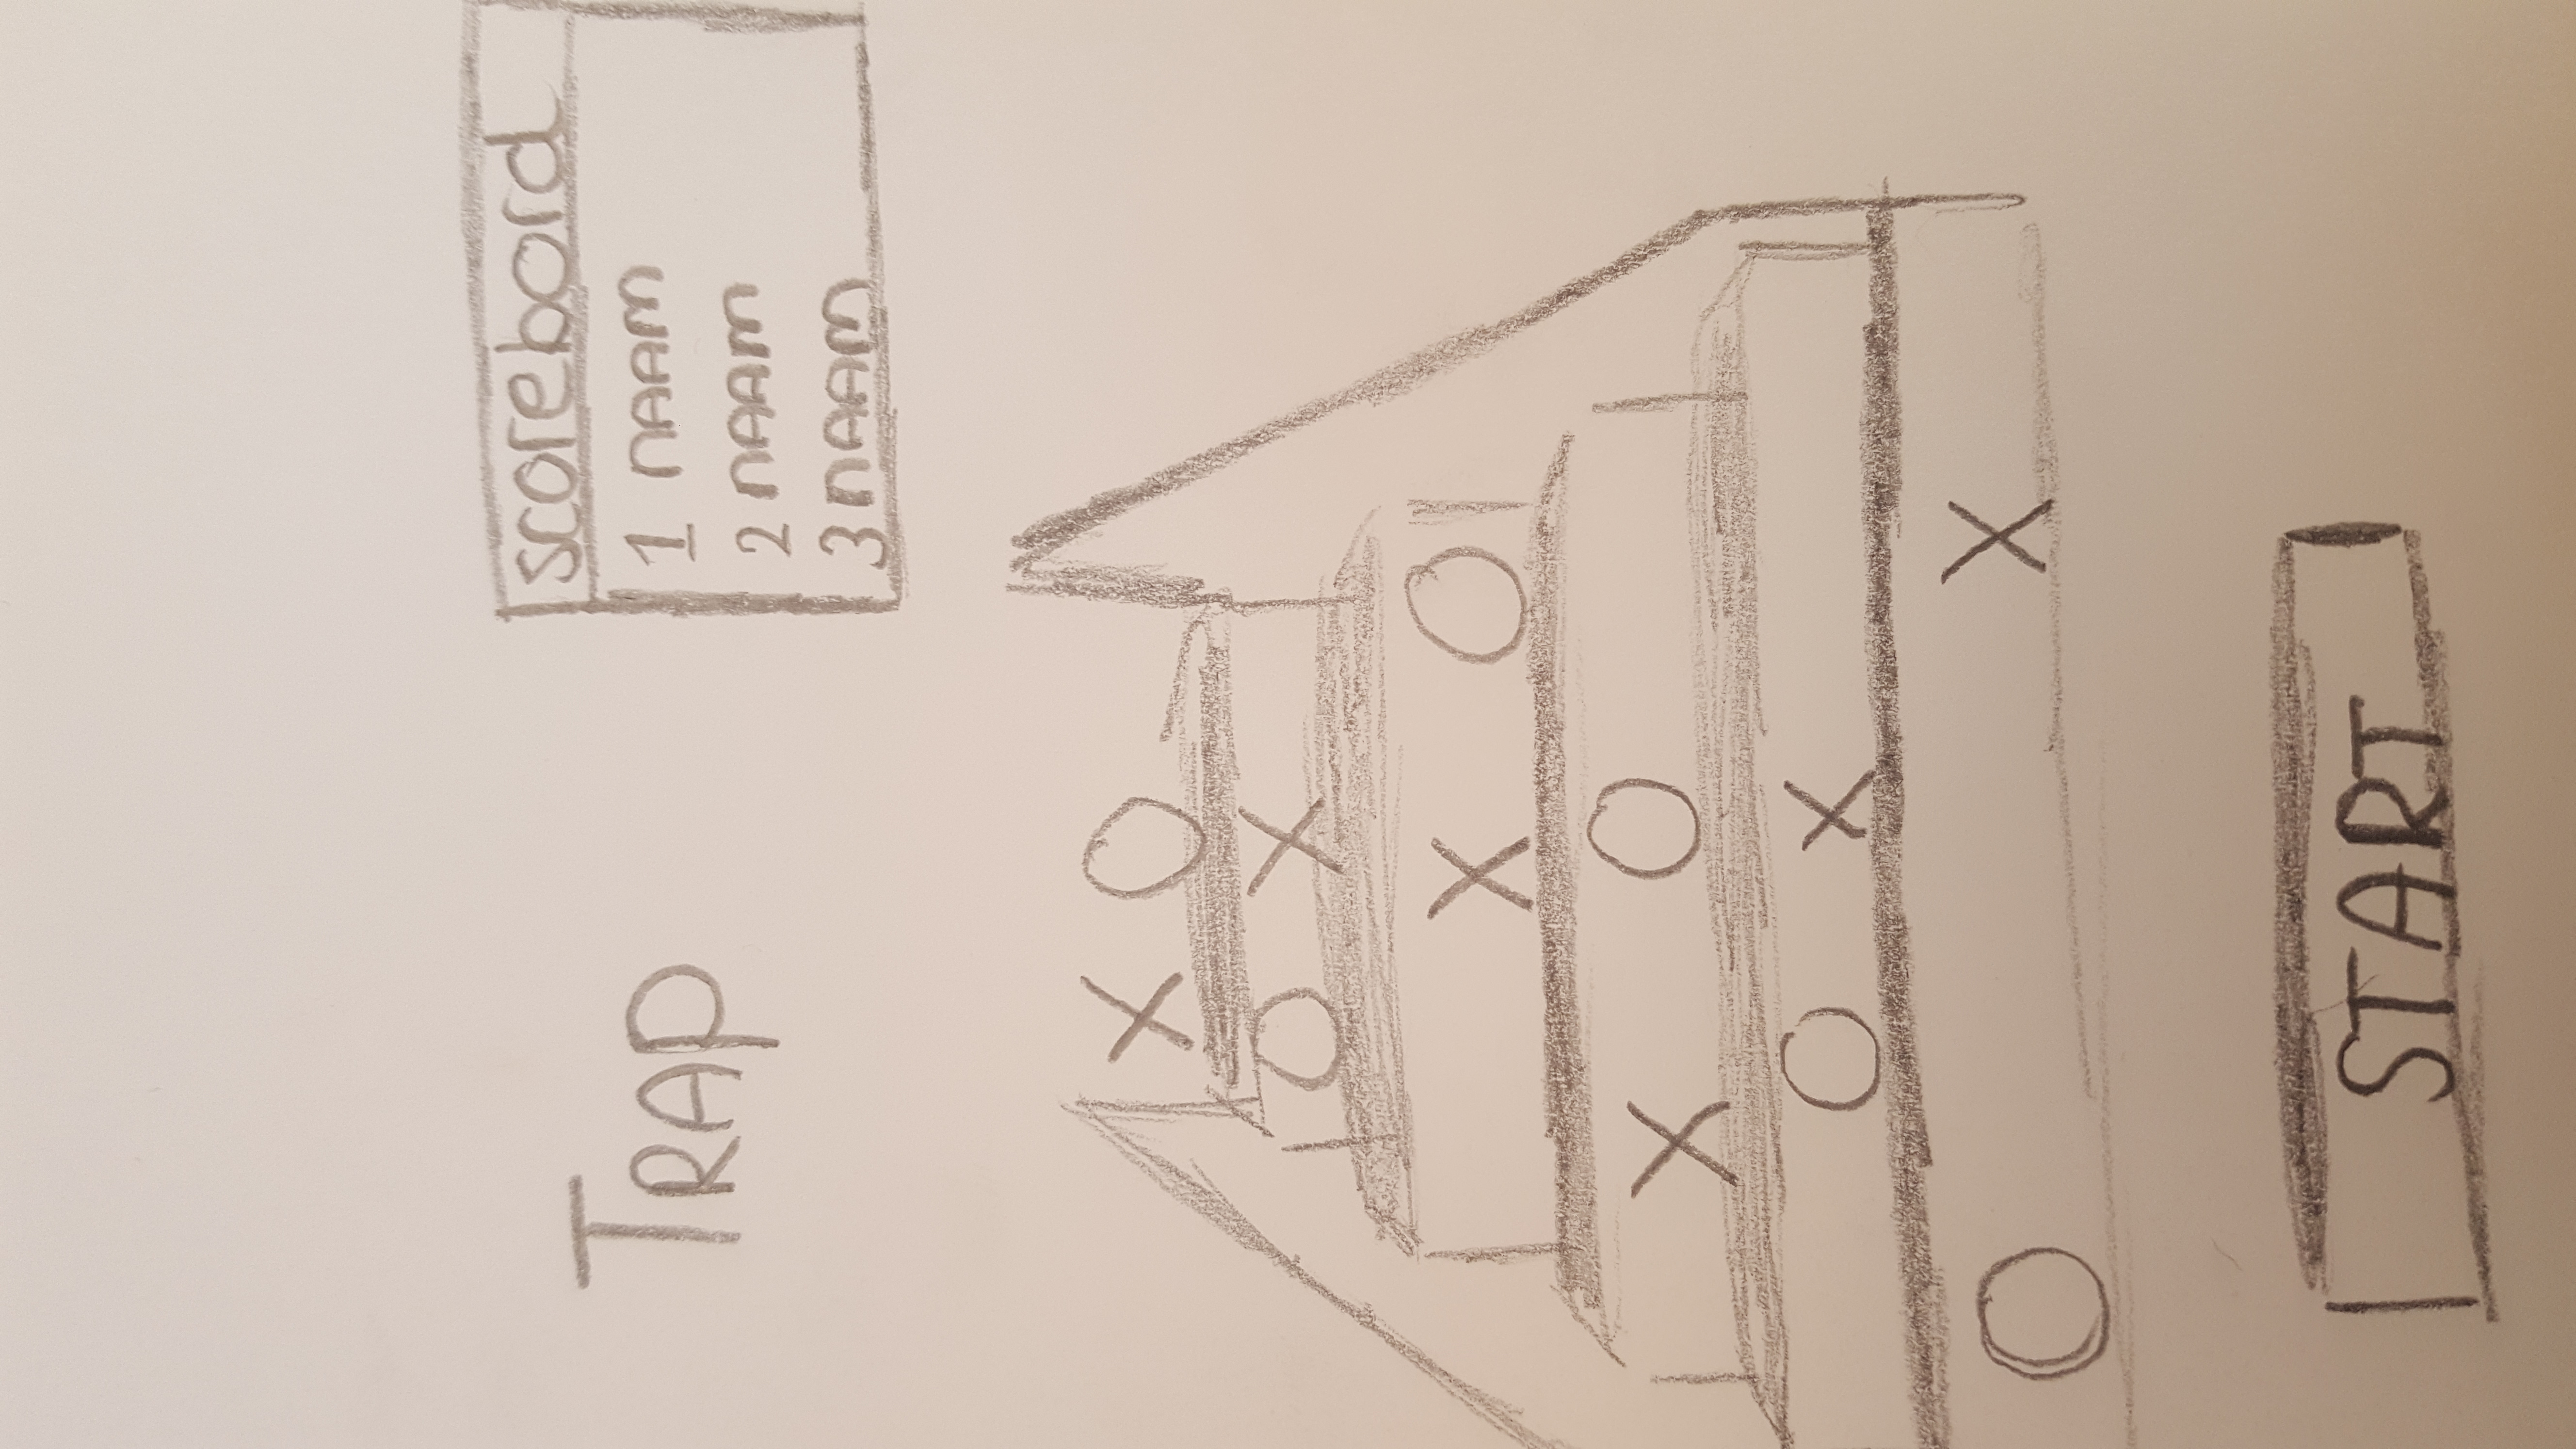 TRAP
scorebord
1 NAAM
2 NAAM
3 NAAM
X O
O X
X O
X O
O X
O X
START